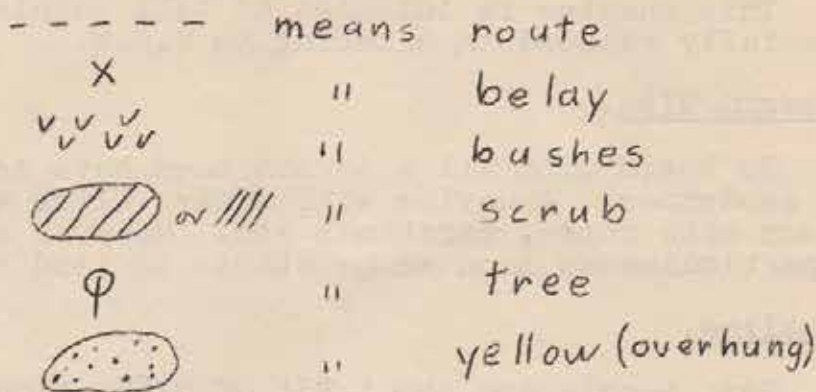 - - - - - - means route
X " belay
v v v v v v " bushes
or //// " scrub
" tree
" yellow (overhung)